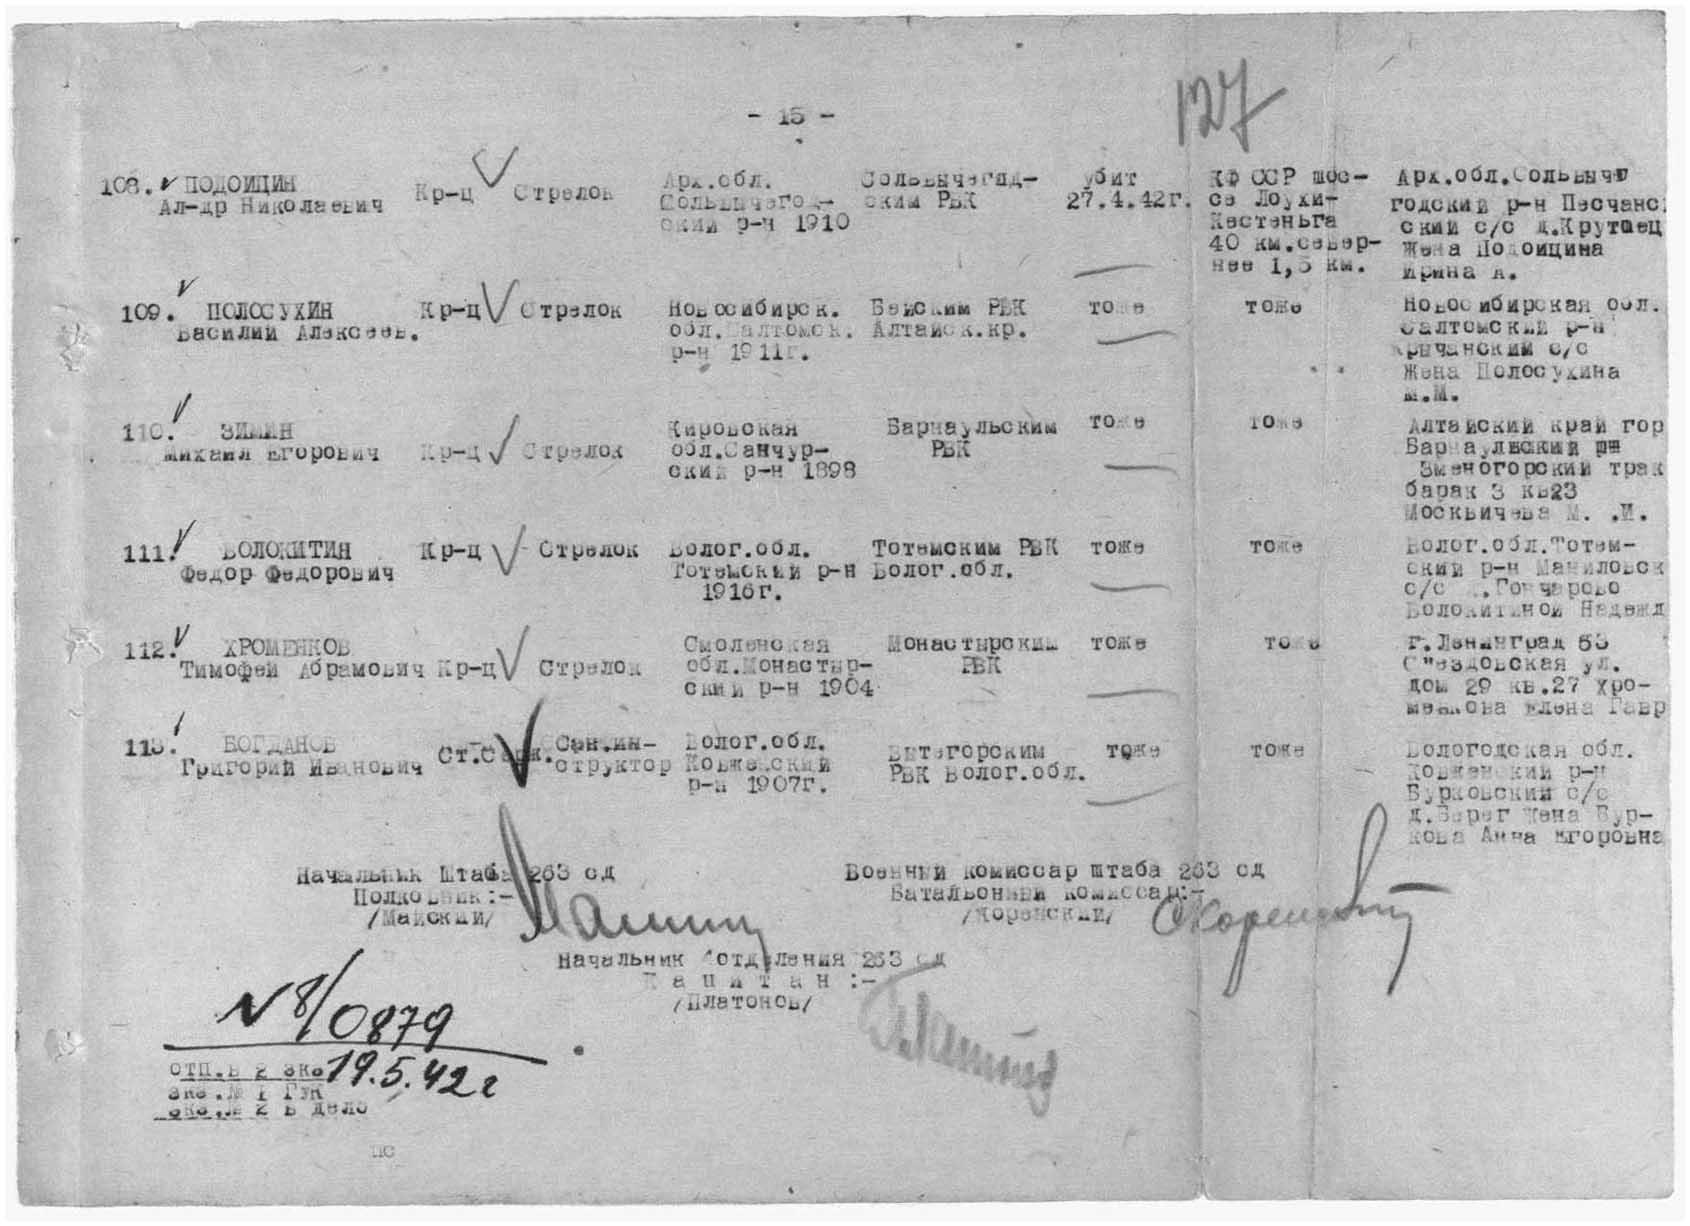 127
- 15 -
108. ПОДОИЦИН
Ал-др Николаевич
Кр-ц
Стрелок
Арх.обл.
Сольвычегод-
ский р-н 1910
Сольвычегод-
ским РВК
убит
27.4.42г.
КФ ССР шос-
се Лоухи-
Кестеньга
40 км.север-
нее 1,5 км.
Арх.обл.Сольвыче
годский р-н Песчанс
ский с/с д.Крутаец
Жена Подоицина
Ирина А.
109. ПОЛОСУХИН
Василий Алексеев.
Кр-ц
Стрелок
Новосибирск.
обл.Салтомск.
р-н 1911г.
Бейским РВК
Алтайск.кр.
тоже
тоже
Новосибирская обл.
Салтомский р-н
Крычанский с/с
Жена Полосухина
М.М.
110. ЗИМИН
Михаил Егорович
Кр-ц
Стрелок
Кировская
обл.Санчур-
ский р-н 1898
Барнаульским
РВК
тоже
тоже
Алтайский край гор
Барнаульский
Зменогорский трак
барак 3 кв23
Москвичева М. .И.
111. ВОЛОКИТИН
Федор Федорович
Кр-ц
Стрелок
Волог.обл.
Тотемский р-н
1916г.
Тотемским РВК
Волог.обл.
тоже
тоже
Волог.обл.Тотем-
ский р-н Маниловск
с/с д.Гончарово
Волокитиной Надежд
112. ХРОМЕНКОВ
Тимофей Абрамович
Кр-ц
Стрелок
Смоленская
обл.Монастыр-
ский р-н 1904
Монастырским
РВК
тоже
тоже
г.Ленинград 53
С"ездовская ул.
дом 29 кв.27 Хро-
менкова Елена Гавр
113. БОГДАНОВ
Григорий Иванович
Ст.Серж.
Сан.ин-
структор
Волог.обл.
Ковженский
р-н 1907г.
Вытегорским
РВК Волог.обл.
тоже
тоже
Вологодская обл.
Ковженский р-н
Бурковский с/с
д.Берег Жена Бур-
кова Анна Егоровна
Начальник Штаба 263 сд
Полковник:-
/Майский/
Военный комиссар штаба 263 сд
Батальонный комиссар:-
/Коренский/
Начальник 4отделения 263 сд
Капитан :-
/Платонов/
N 8/0879
19.5.42г
отп.в 2 экз
экз.№ 1 ГУК
экз.№ 2 в дело
ПС